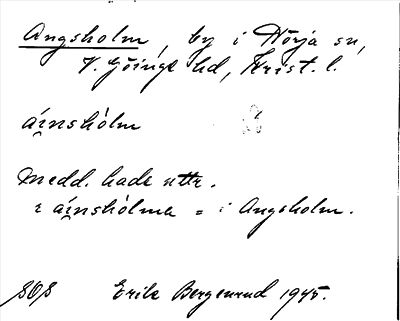 Angsholm, by i Hörja sn,
V. Göinge hd, Krist. l.
áinshòlm
Medd. hade uttr.
i áinshòlma = i Angsholm.
SOS Erik Bergenrud 1945.